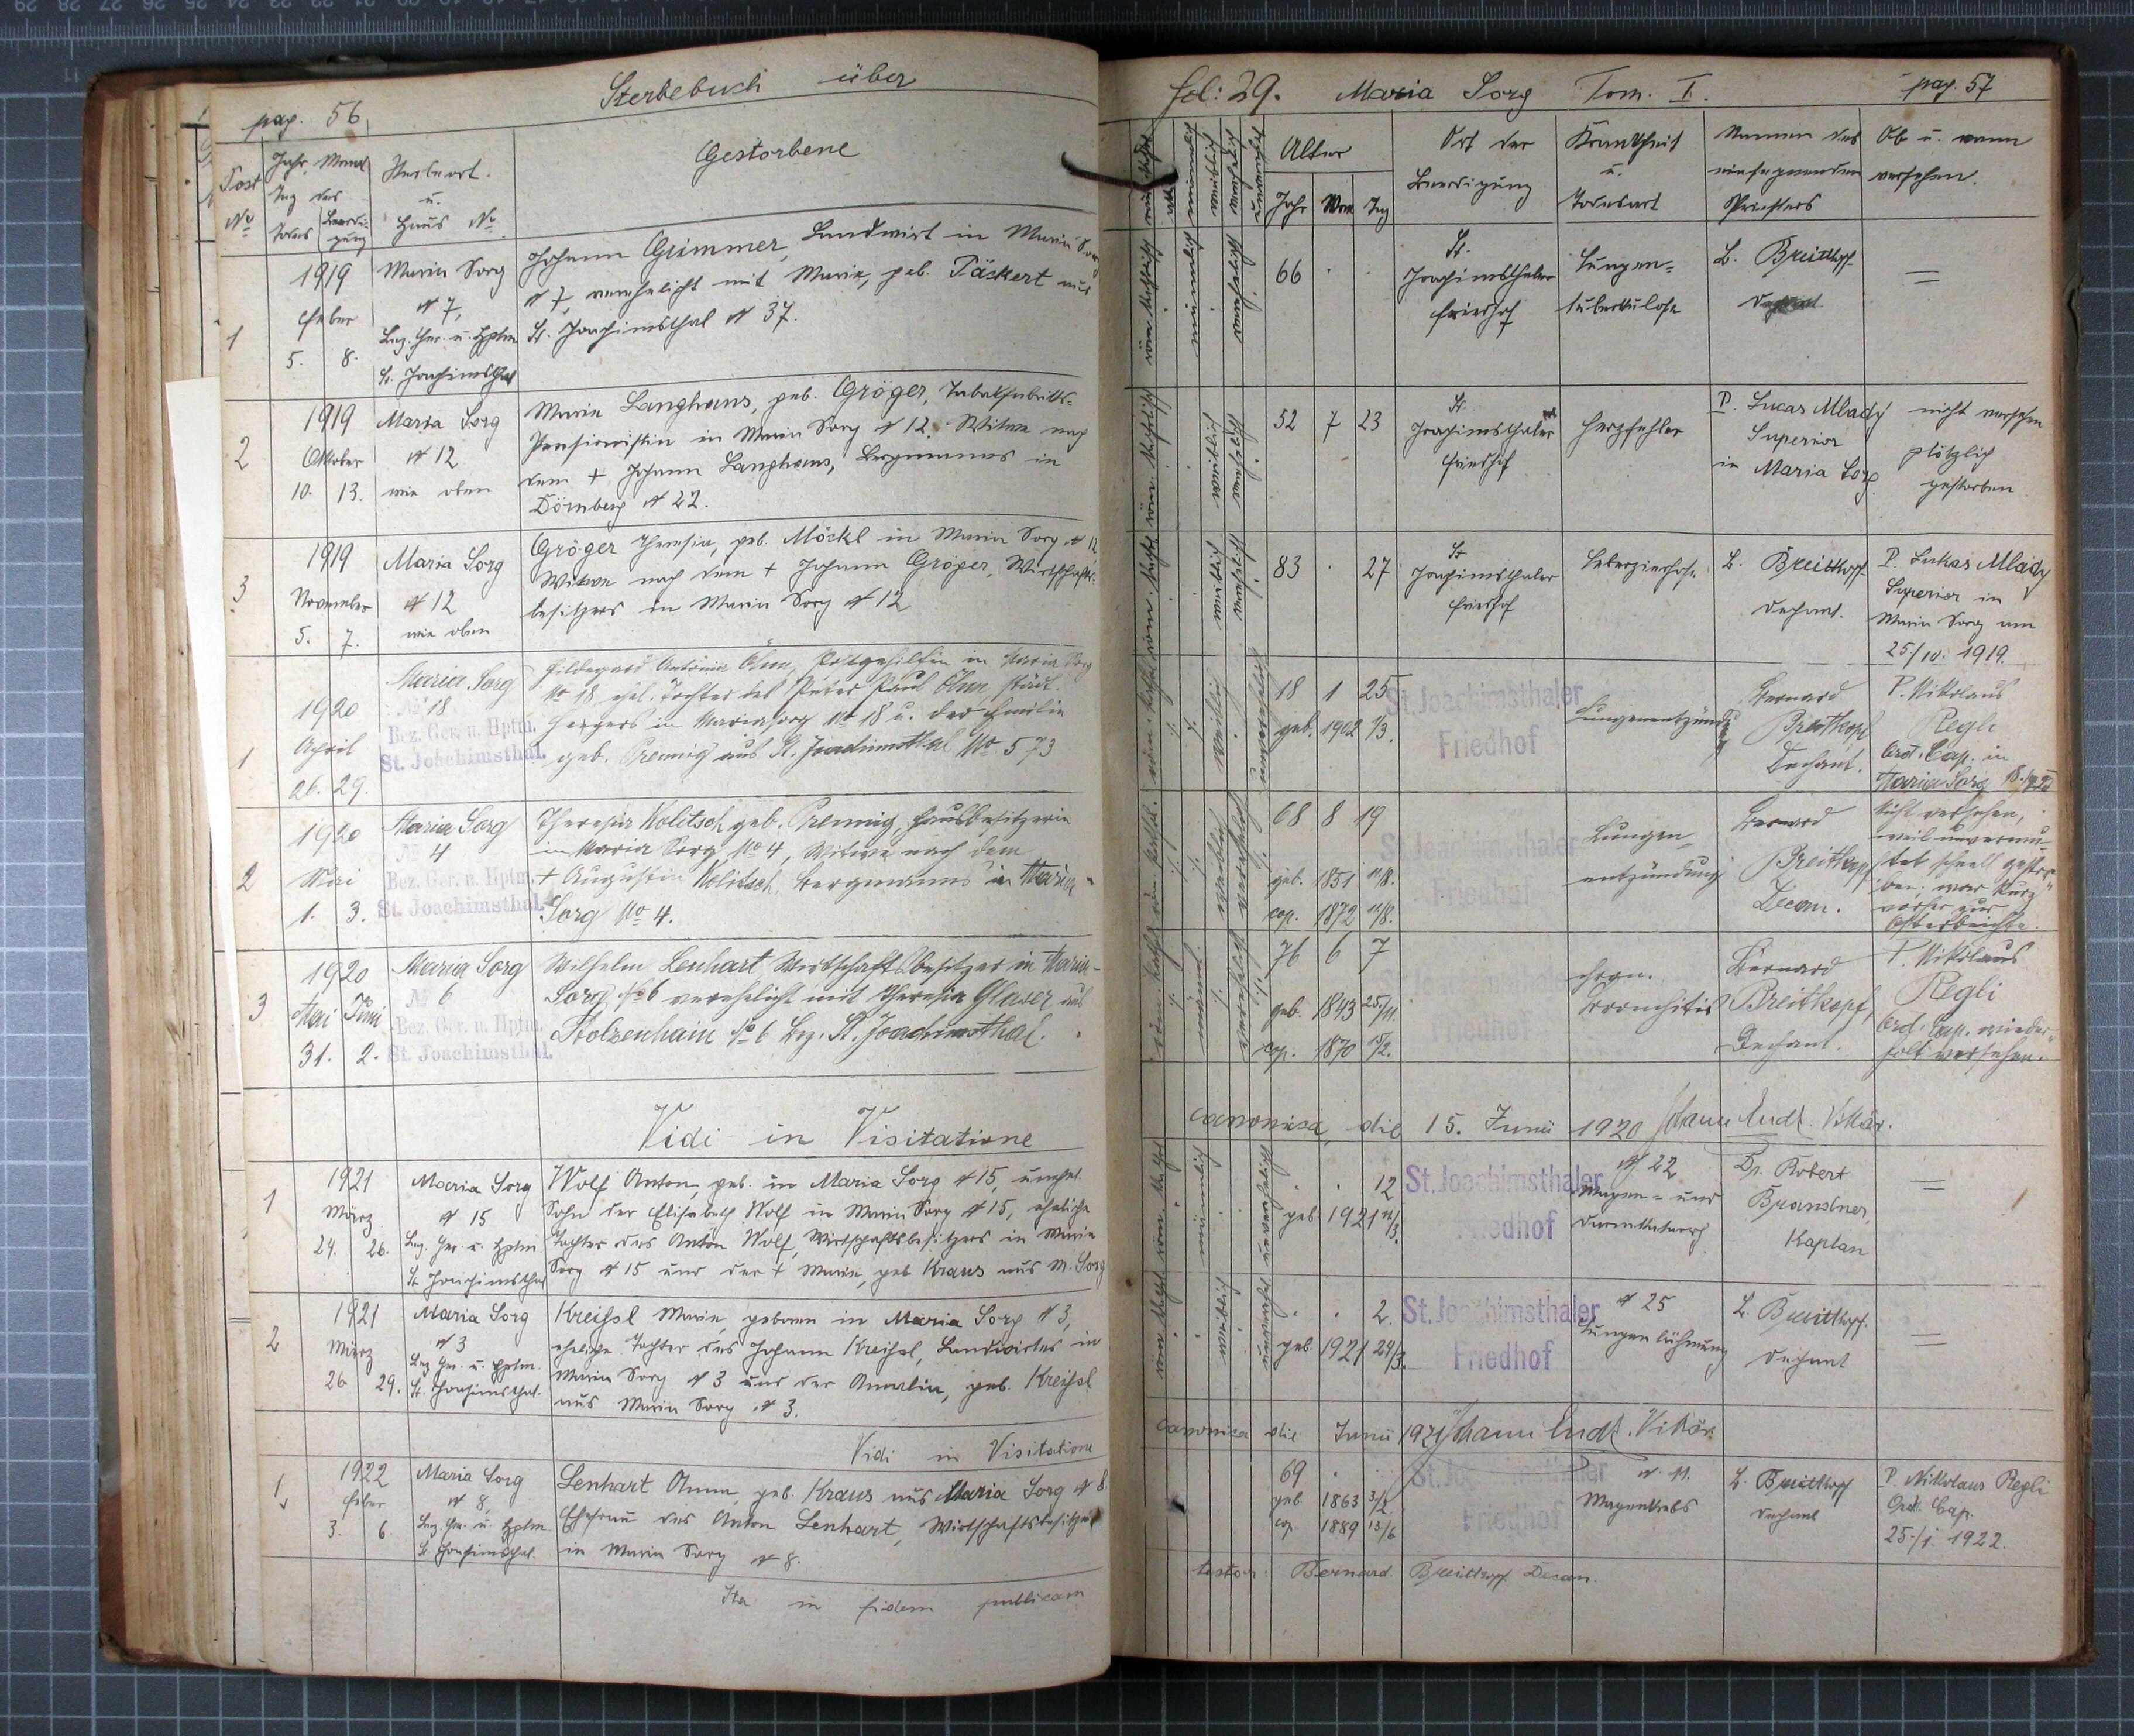 pag. 56
Sterbebuch über
Post
No
Jahr, Monat
Tag des
Todes
Beerdigung
Sterbeort.
u.
Haus No
Gestorbene
1
1919
Feber
5. 8.
Maria Sorg
№ 7,
Bez. Ger. u. Hptm
St. Joachimsthal
Johann Grimmer, Landwirt in Maria Sorg
№ 7, verehelicht mit Maria, geb. Päckert aus
St. Joachimsthal № 37.
2
1919
Oktober
10. 13.
Maria Sorg
№ 12
wie oben
Maria Langhans, geb. Gröger, Tabakfabriks=
Pensionistin in Maria Sorg № 12. Witwe nach
dem + Johann Langhans, Bergmanns in
Dörnberg № 22.
3
1919
November
5. 7.
Maria Sorg
№ 12
wie oben
Gröger Theresia, geb. Möckl in Maria Sorg № 12
Witwe nach dem + Johann Gröger, Wirtschafts=
besitzers in Maria Sorg № 12
1
1920
April
26. 29.
Maria Sorg
№ 18
Bez. Ger. u. Hptm.
St. Joachimsthal.
Hildegard Antonia Öhm, Postgehilfin in Maria Sorg
No 18 ehel. Tochter des Peter Paul Öhm, städt.
Hegers in Mariasorg No 18 u. der Emilie
geb. Prennig aus St. Joachimsthal No 573
2
1920
Mai
1. 3.
Maria Sorg
№ 4
Bez. Ger. u. Hptm.
St. Joachimsthal.
Theresia Kolitsch geb. Prennig, Hausbesitzerin
in Maria Sorg No 4, Witwe nach dem
+ Augustin Kolitsch, Bergmanns in Maria=
Sorg No 4.
3
1920
Mai Juni
31. 2.
Maria Sorg
№ 6
Bez. Ger. u. Hptm.
St. Joachimsthal.
Wilhelm Lenhart Wirtschaftsbesitzer in Maria-
Sorg No 6 verehelicht mit Theresia Glaser aus
Stolzenhain No 6 Bez. St. Joachimsthal.
Vidi in Visitatione
1
1921
März
24. 26.
Maria Sorg
№ 15
Bez. Ger. u. Hptm
St. Joachimsthal
Wolf Anton, geb. in Maria Sorg № 15, unehel.
Sohn der Elisabeth Wolf in Maria Sorg № 15, eheliche
Tochter des Anton Wolf, Wirtschaftsbesitzers in Maria
Sorg № 15 und der + Maria, geb Kraus aus M. Sorg
2
1921
März
26 29.
Maria Sorg
№ 3
Bez Ger. u. Hptm.
St. Joachimsthal.
Kreißl Marie, geboren in Maria Sorg № 3,
eheliche Tochter des Johann Kreißl, Landwirtes in
Maria Sorg № 3 und der Amalia, geb. Kreißl
aus Maria Sorg № 3.
Vidi in Visitatione
1
1922
Feber
3. 6.
Maria Sorg
№ 8,
Bez. Ger. u. Hptm.
St. Joachimsthal.
Lenhart Anna, geb. Kraus aus Maria Sorg № 8
Ehefrau des Anton Lenhart, Wirtschaftsbesitzers
in Maria Sorg № 8.
Ita in fidem publicam
fol: 29. Maria Sorg Tom. I. pag. 57
Alter
Jahr Mon Tag
Ort der
Beerdigung
Krankheit
u.
Todesart
Namen des
einsegnenden
Priesters
Ob u. wann
versehen.
66 . .
St.
Joachimsthaler
Friedhof
Lungen=
tuberkulose
B. Breitkopf
Dechant
=
52 7 23
St.
Joachimsthaler
Friedhof
Herzfehler
P. Lucas Mlady
Superior
in Maria Sorg
nicht versehen
plötzlich
gestorben
83 . 27
St
Joachimsthaler
Friedhof
Leberzirrhose
B. Breitkopf
Dechant.
P. Lukas Mlady
Superior in
Maria Sorg am
25/10. 1919.
18 1 25
geb. 1902 1/3.
St. Joachimsthaler
Friedhof
Lungenentzündung
Bernard
Breitkopf
Dechant.
P. Nikolaus
Regli
Ord. Cap. in
Maria Sorg
68 8 19
geb. 1851 11/8.
cop. 1872 11/8.
St. Joachimsthaler
Friedhof
Lungen
entzündung
Bernard
Breitkopf
Decan.
Nicht versehen,
weil unvermu=
tet schnell gestor=
ben; war kurz
vorher zur
Osterbeichte.
76 6 7
geb. 1843 25/11.
cop. 1870 15/2.
St. Joachimsthaler
Friedhof
chron.
Bronchitis
Bernard
Breitkopf,
Dechant.
P. Nikolaus
Regli
Ord. Cap. wieder=
holt versehen.
canonica, die 15. Junii 1920 Johann Endt. Vikär.
. . 12
geb 1921 12/3.
St. Joachimsthaler
Friedhof
№ 22
Magen= und
Darmkatarrh
Dr. Robert
Brandner,
Kaplan
=
. . 2.
geb. 1921 24/3.
St. Joachimsthaler
Friedhof
№ 25
Lungenlähmung
B. Breitkopf.
Dechant
=
canonica die Junii 1921 Johann Endt. Vikär
69 . .
geb. 1863 3/2.
cop. 1889 13/6
St. Joachimsthaler
Friedhof
№ 11.
Magenkrebs
B. Breitkopf
Dechant
P. Nikolaus Regli
Ord. Cap.
25./1. 1922.
testor: Bernard Breitkopf Decan.